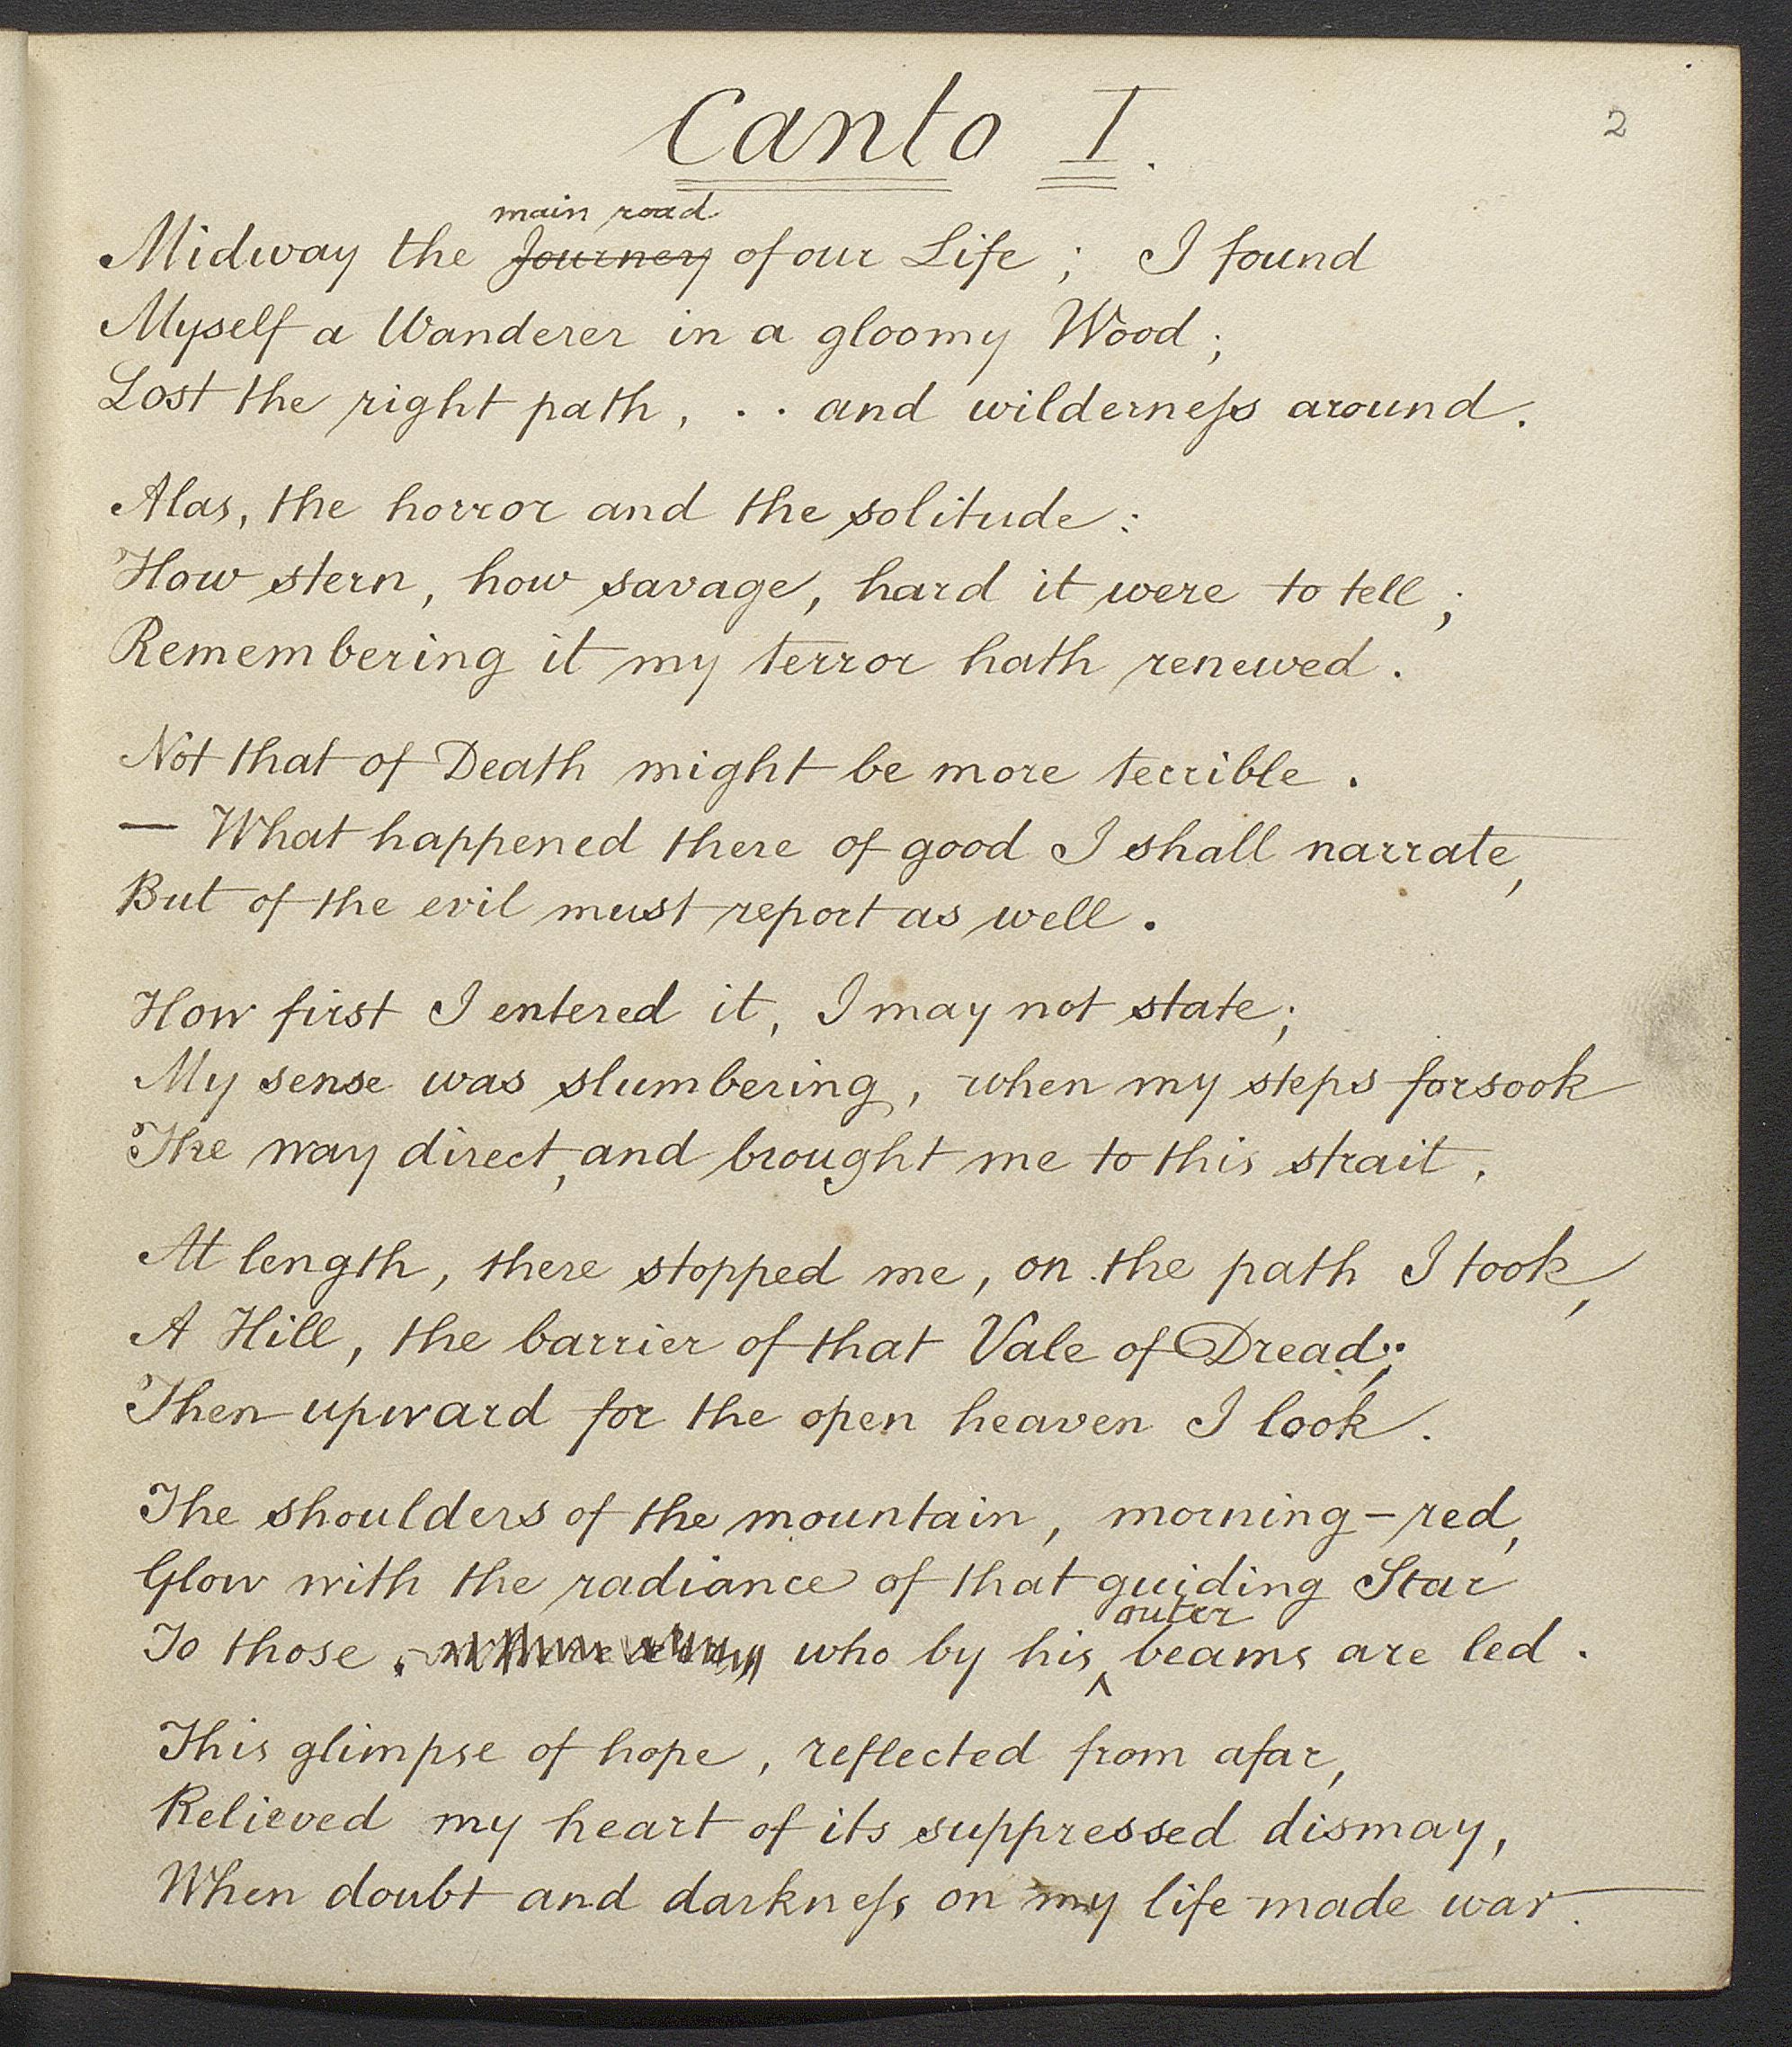 Canto I.
2
main road
Midway the Journey of our Life ; I found
Myself a Wanderer in a gloomy Wood ;
Lost the right path, . . and wilderneſs around.
Alas, the horror and the solitude :
How stern, how savage, hard it were to tell ;
Remembering it my terror hath renewed .
Not that of Death might be more terrible .
— What happened there of good I shall narrate,
But of the evil must report as well .
How first I entered it, I may not state ;
My sense was slumbering, when my steps forsook
The way direct, and brought me to this strait .
At length, there stopped me, on the path I took,
A Hill, the barrier of that Vale of Dread ;
Then upward for the open heaven I look .
The shoulders of the mountain, morning-red,
Glow with the radiance of that guiding Star
outer
To those , who by his ‸ beams are led .
This glimpse of hope , reflected from afar,
Relieved my heart of its suppressed dismay,
When doubt and darkneſs on my life made war .